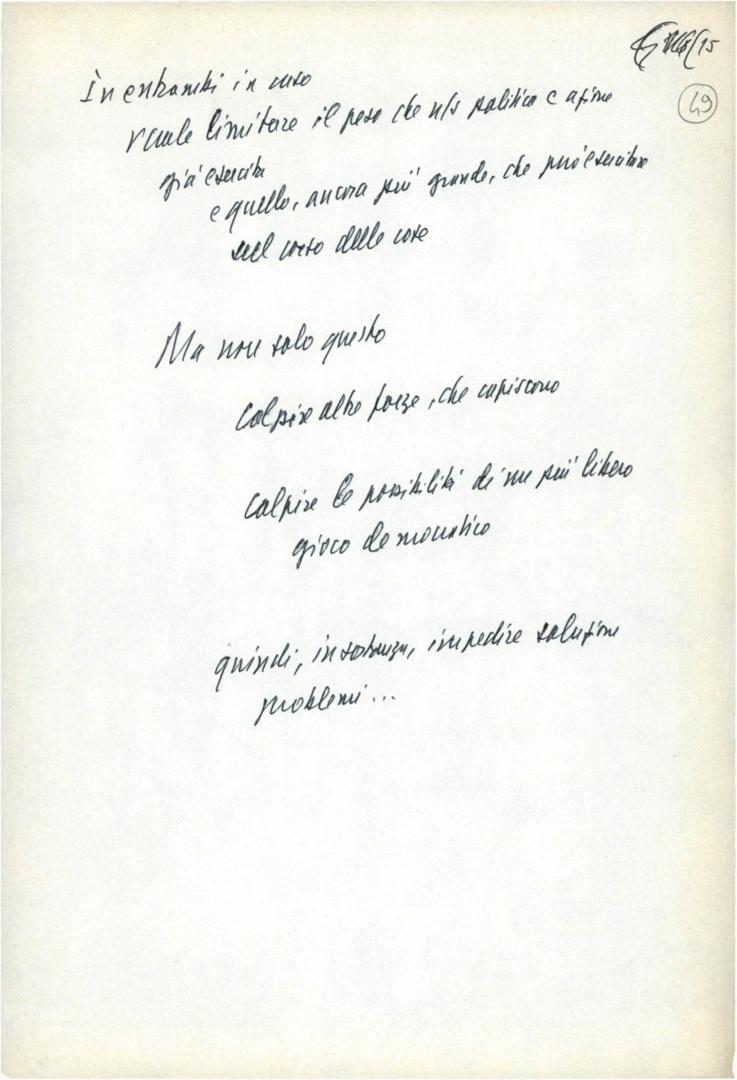 49
In entrambi in caso
vuole limitare il peso che n/s politica e azione
già esercita
e quello, ancora più grande, che può esercitare
sul corso delle cose
Ma non solo questo
Colpire altre forze, che capiscono
Colpire le possibilità di un più libero
gioco democratico
quindi, in sostanza, impedire soluzione
problemi...